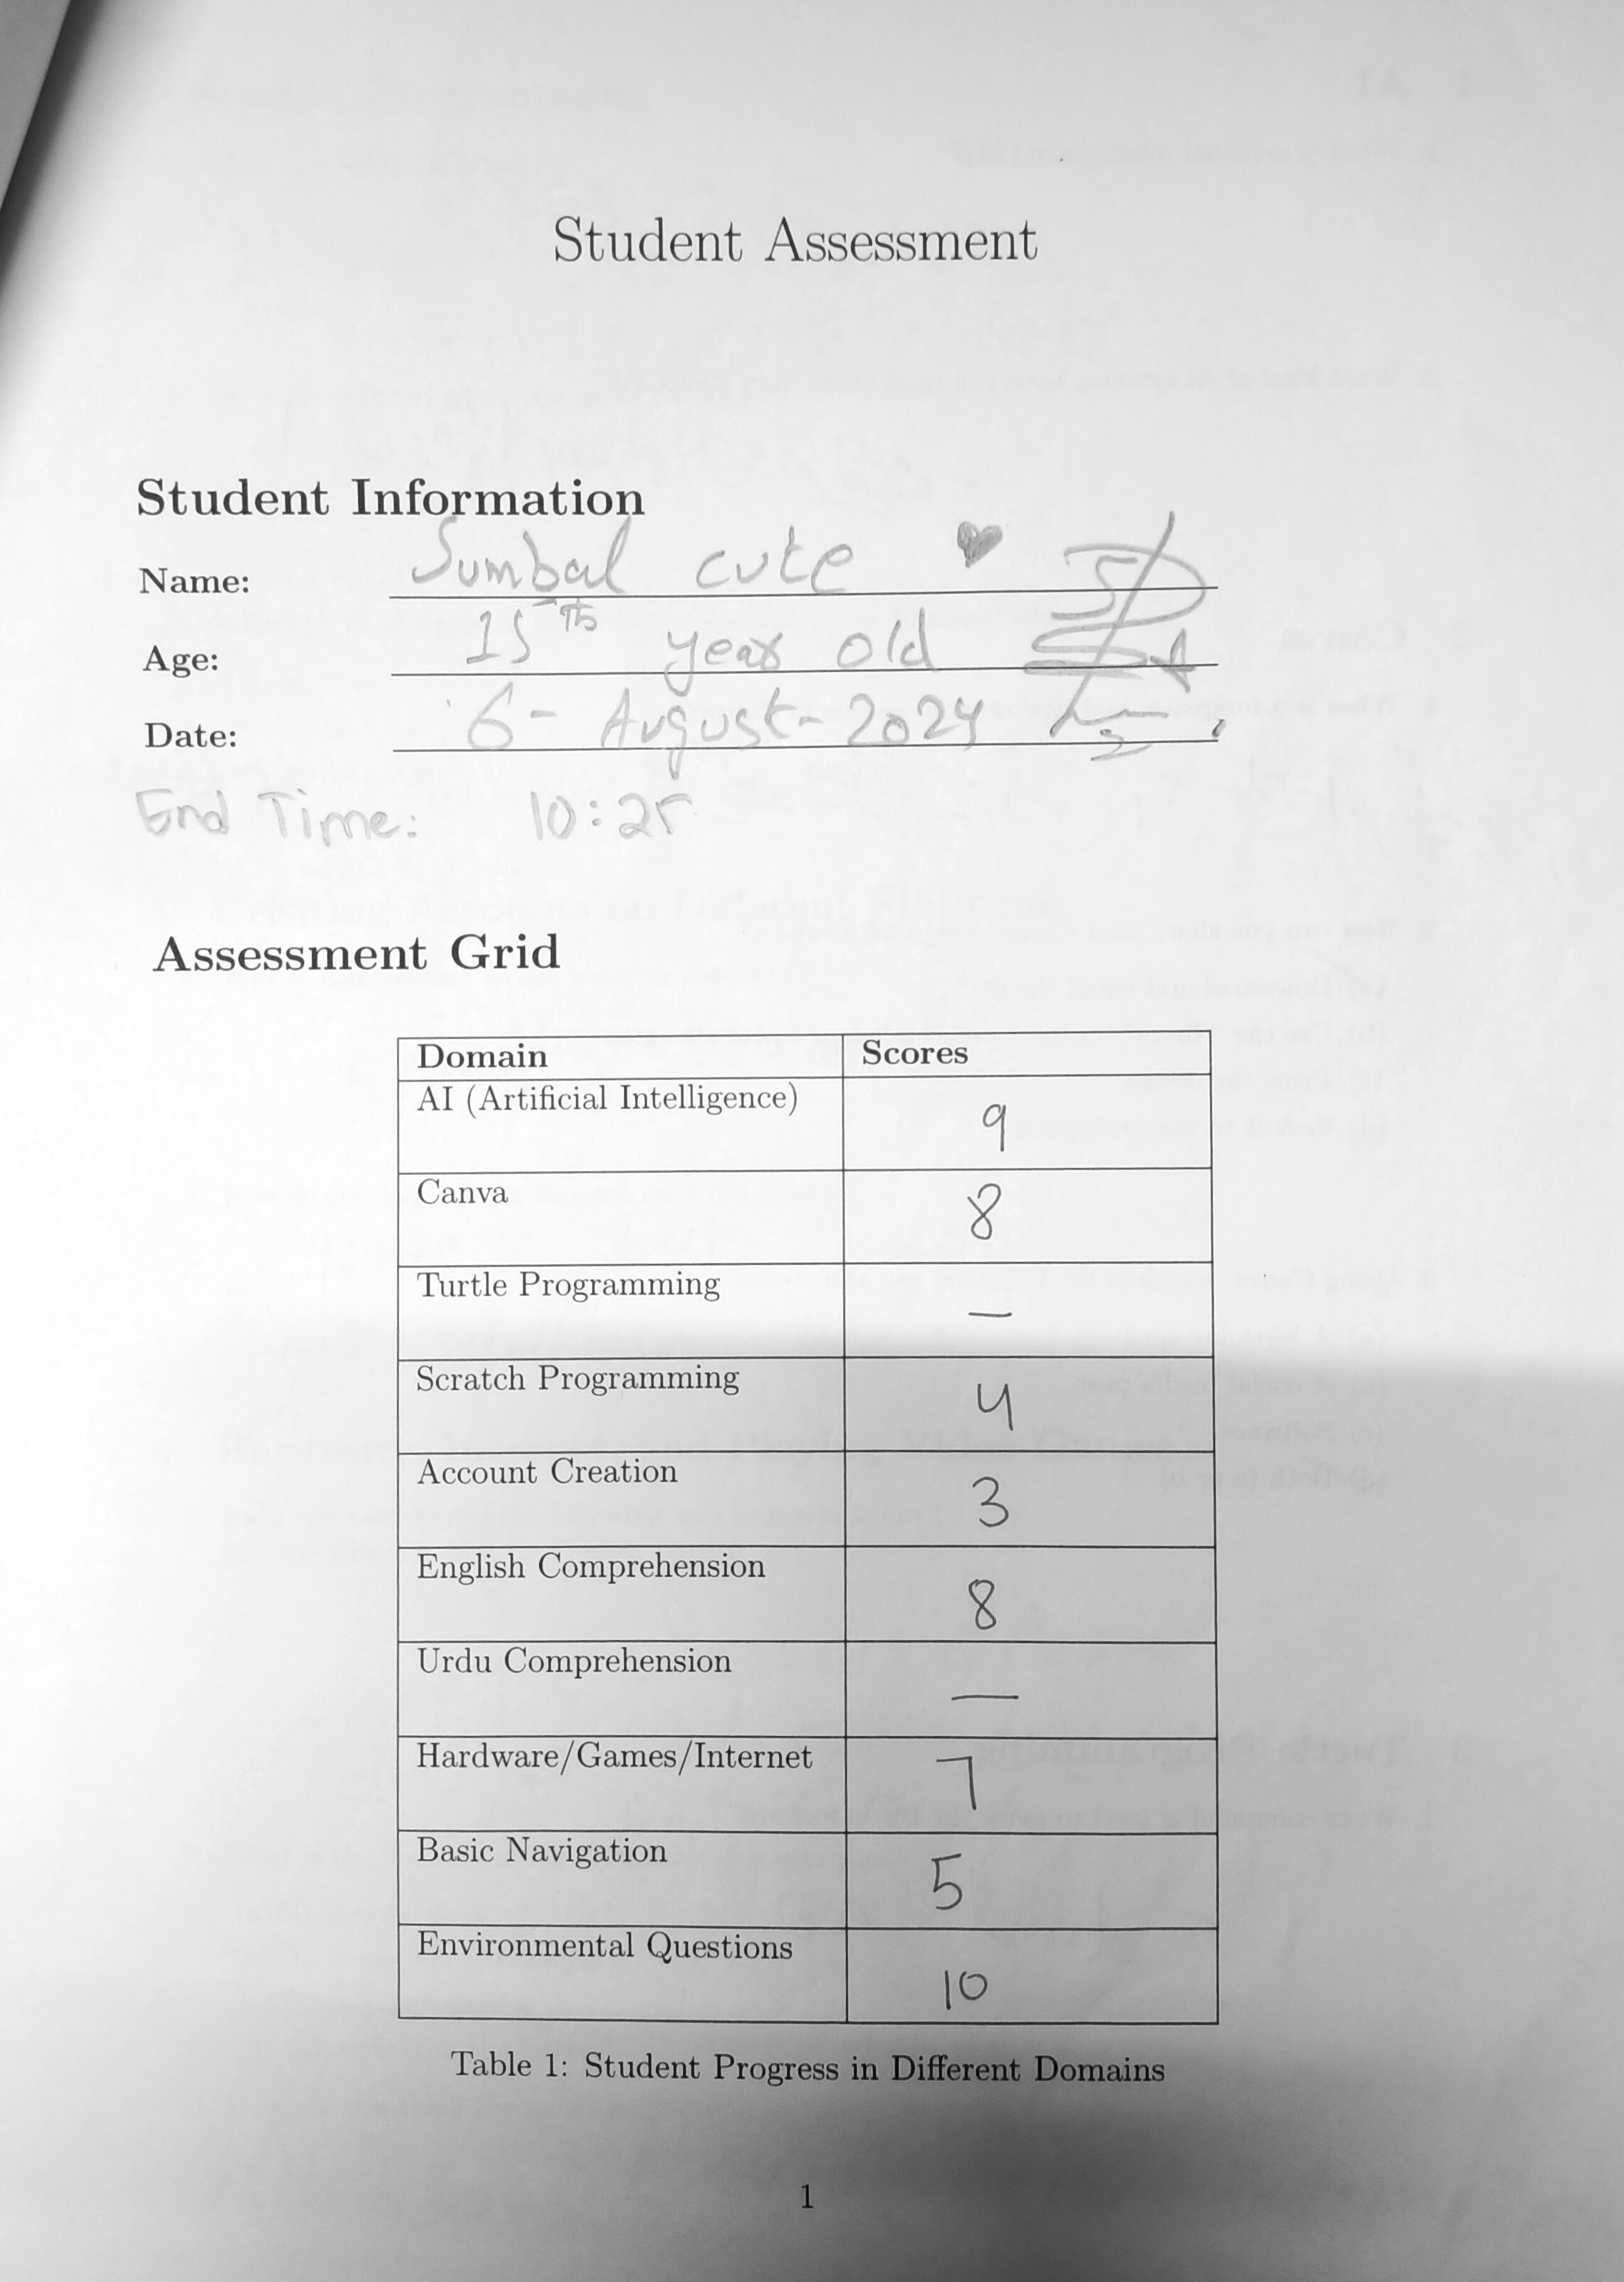 Student Assessment
Student Information
Name: Sumbal cute
Age: 15th year old
Date: 6 - August - 2024
End Time: 10:25
Assessment Grid
Domain Scores
AI (Artificial Intelligence) 9
Canva 8
Turtle Programming —
Scratch Programming 4
Account Creation 3
English Comprehension 8
Urdu Comprehension —
Hardware/Games/Internet 7
Basic Navigation 5
Environmental Questions 10
Table 1: Student Progress in Different Domains
1